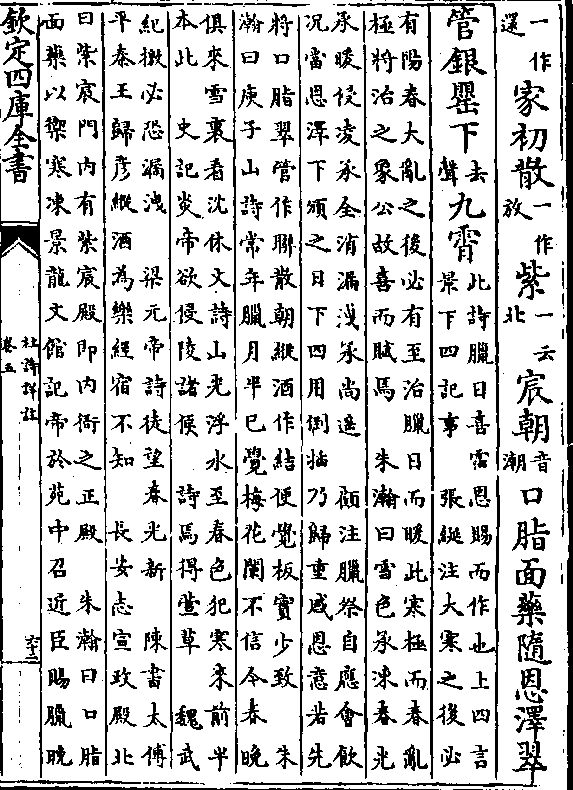 一作還家初散一作放紫一云北宸朝音潮口脂面藥隨恩澤翠
管銀罌下去聲九霄此詩臘日喜霑恩賜而作也上四言
景下四記事　張綖注大寒之後必
有陽春大亂之後必有至治臘日而暖此寒極而春亂
極將治之象公故喜而賦焉　朱瀚曰雪色承凍春光
承暖侵凌承全消漏洩承尚遙　顧注臘祭自應會飲
况當恩澤下頒之日下四用倒插乃歸重感恩意若先
將口脂翠管作聯散朝縱酒作結便覺板實少致　朱
瀚曰庾子山詩常年臘月半已覺梅花闌不信今春晚
俱來雪裏看沈休文詩山光浮水至春色犯寒來前半
本此　史記炎帝欲侵陵諸侯　詩焉得萱草　魏武
紀檄必恐漏洩　梁元帝詩徒望春光新　陳書太傅
平秦王歸彦縱酒為樂經宿不知　長安志宣政殿北
曰紫宸門内有紫宸殿即内衙之正殿　朱瀚曰口脂
面藥以禦寒凍景龍文館記帝於苑中召近臣賜臘晚
欽定四庫全書
杜詩詳註
卷五
六十三